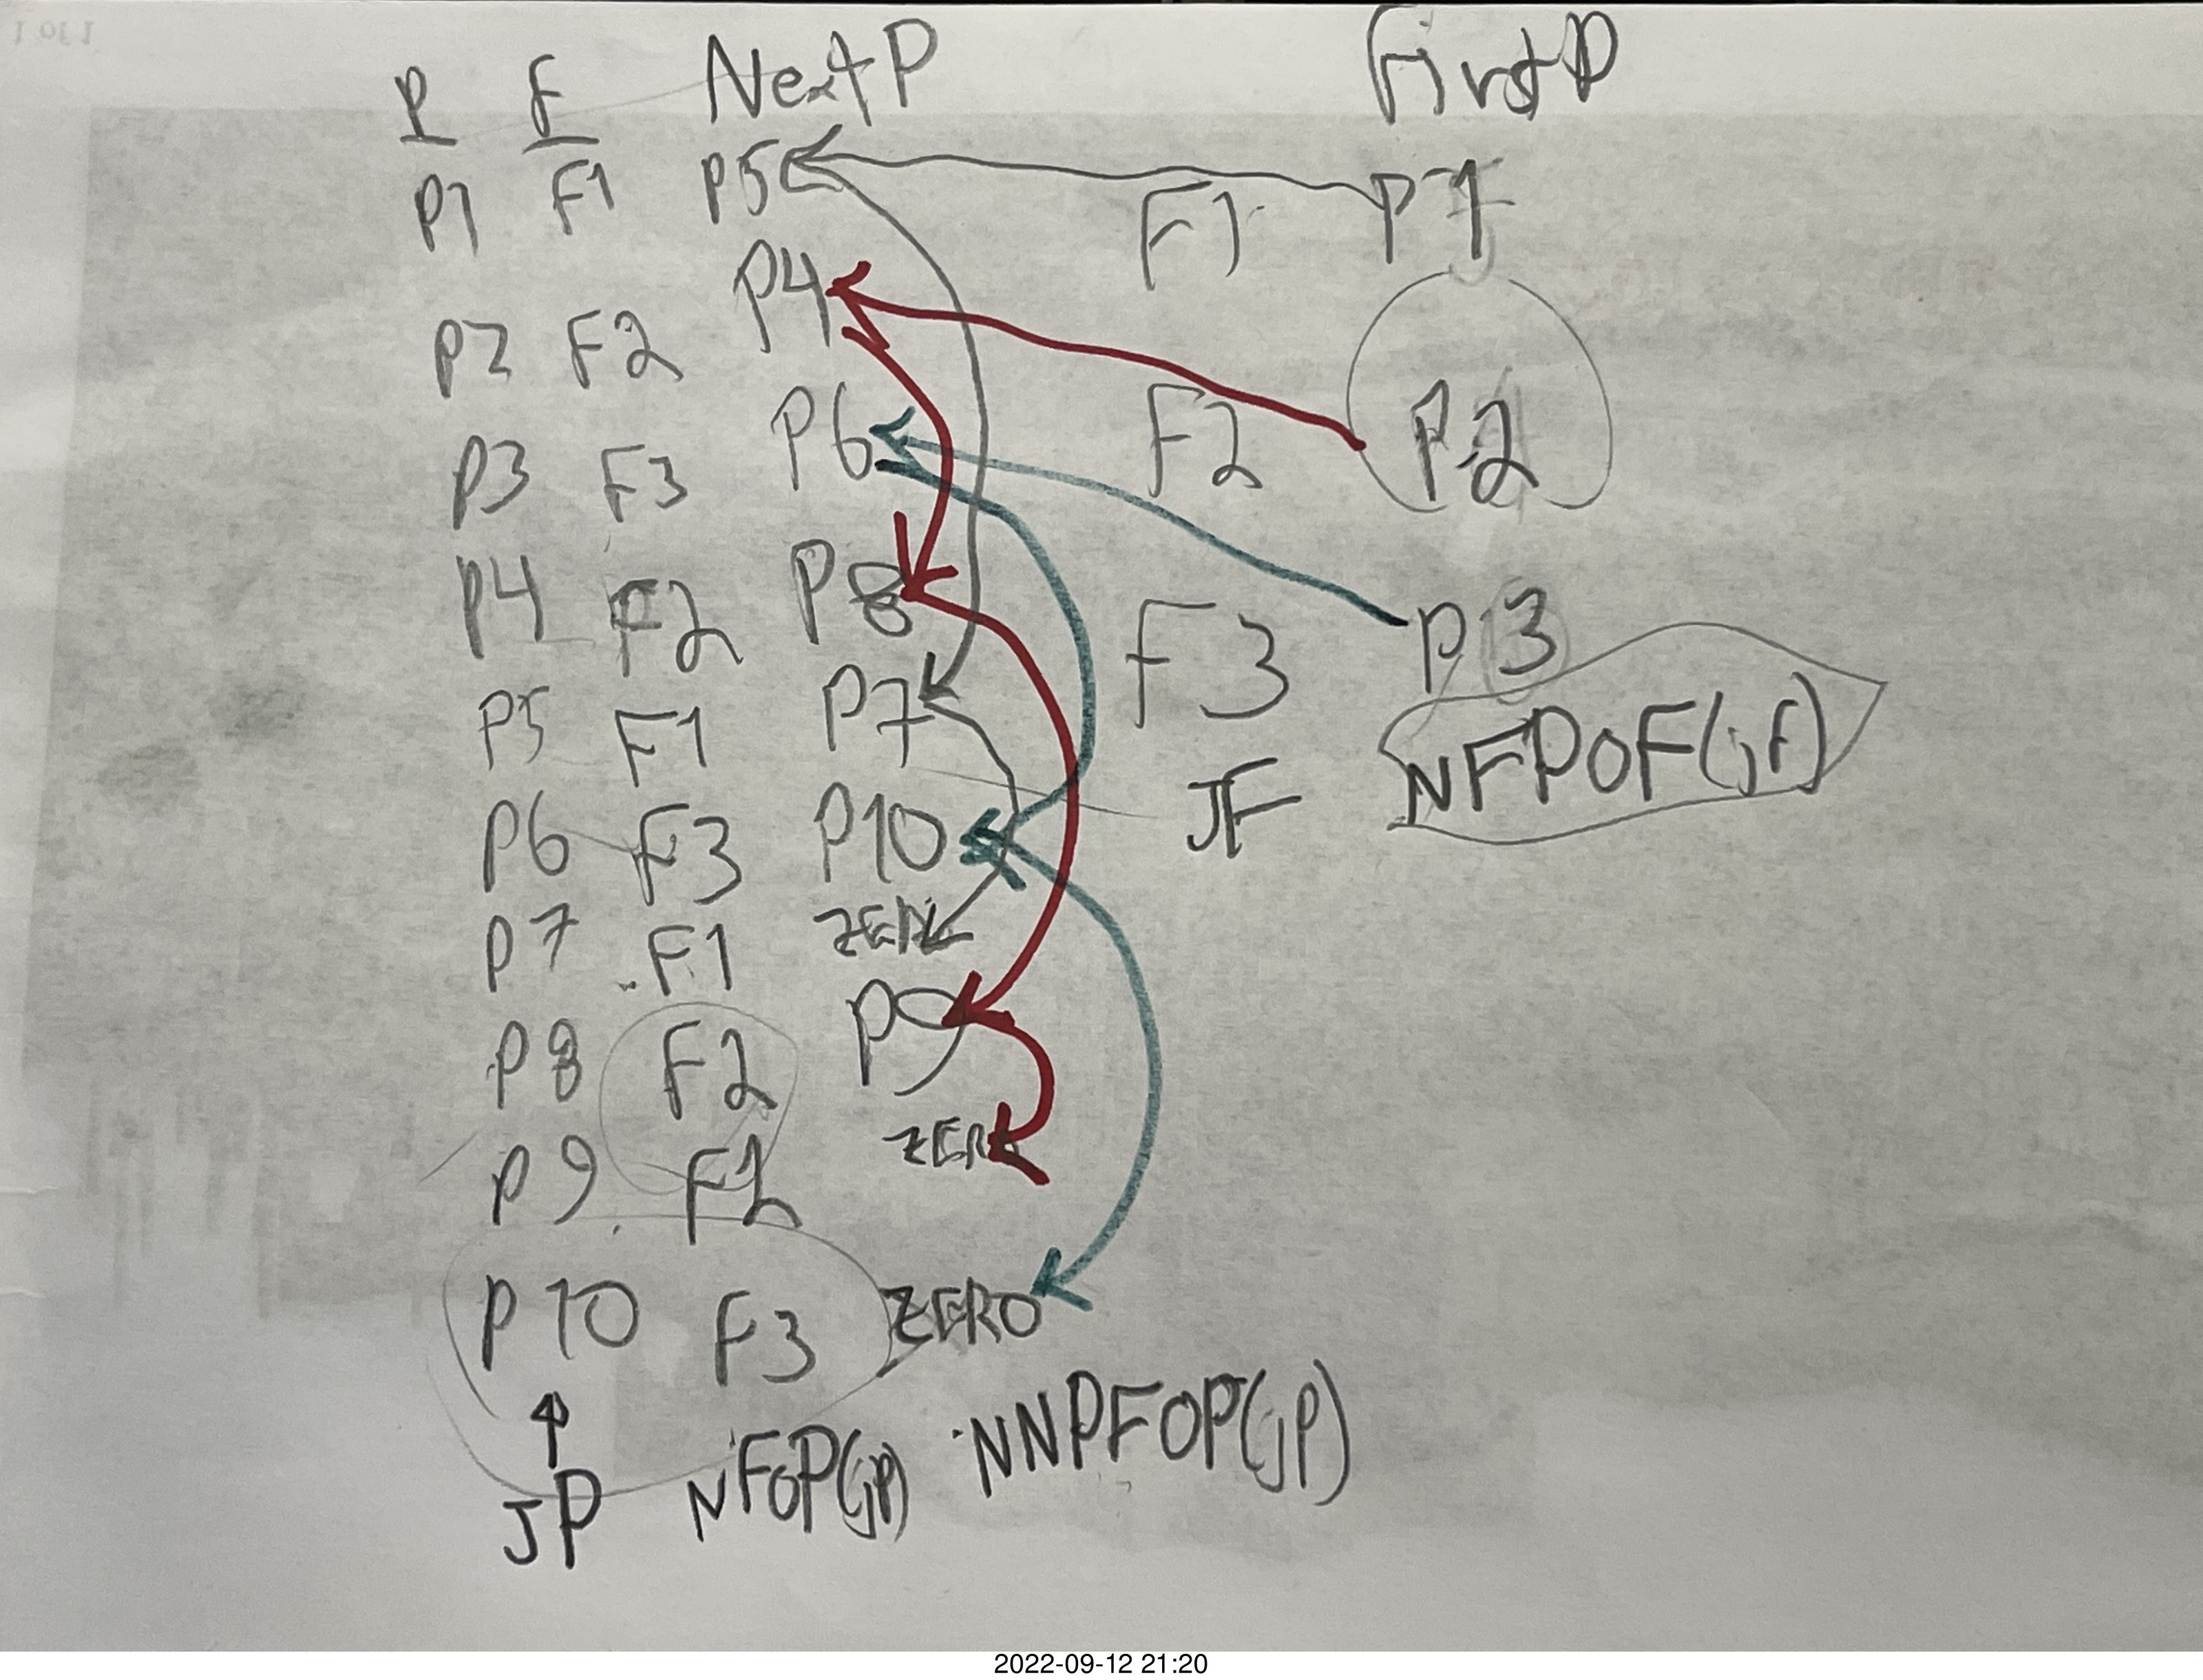 1 of 1
P F NextP FirstP
P1 F1 P5 F1 P1
P2 F2 P4 F2 P2
P3 F3 P6 F3 P3
P4 F2 P8
P5 F1 P7 JF NFPOF(jf)
P6 F3 P10
P7 F1 ZERO
P8 F2 P9
P9 F2 ZERO
P10 F3 ZERO
JP NFOP(jp) NNPFOP(jp)
2022-09-12 21:20